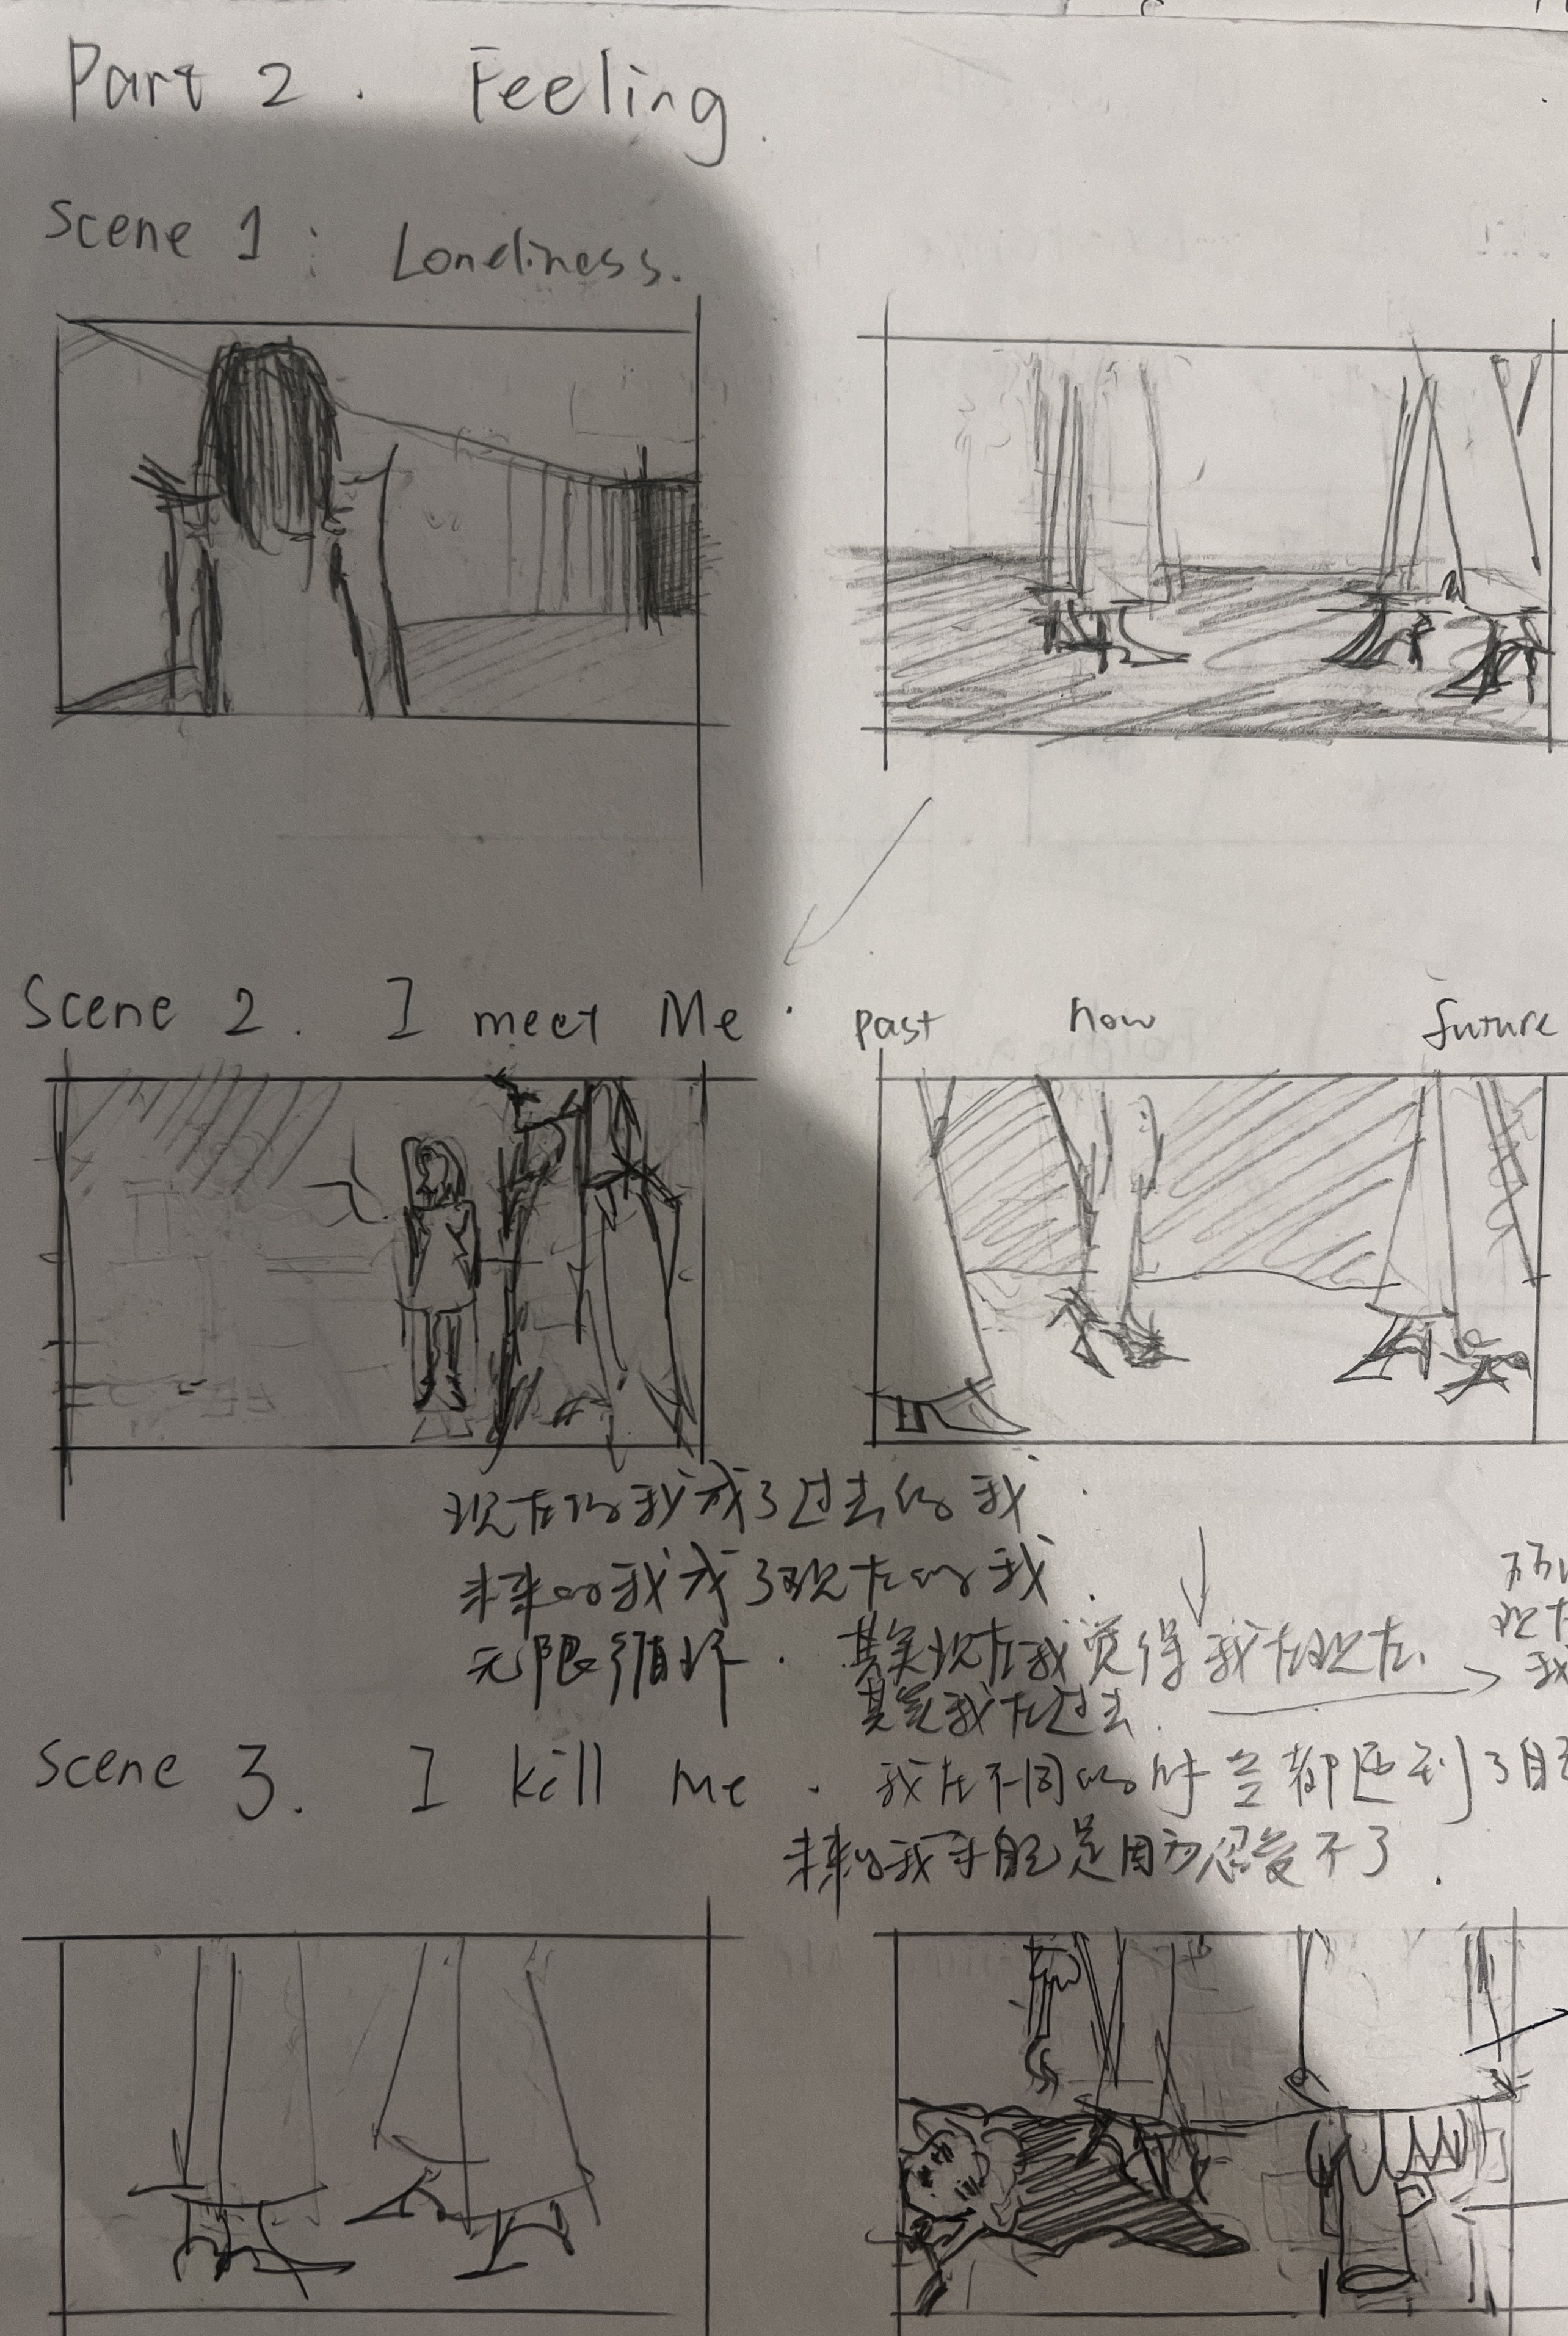 Part 2. Feeling.
Scene 1: Loneliness.
Scene 2. I meet Me.
past now future
现在的我成了过去的我.
未来的我成了现在的我.
无限循环.
其实现在我觉得我在现在.
其实我在过去.
Scene 3. I kill me.
我在不同的时空都遇到了自
未来的我杀自己是因为忍受不了.